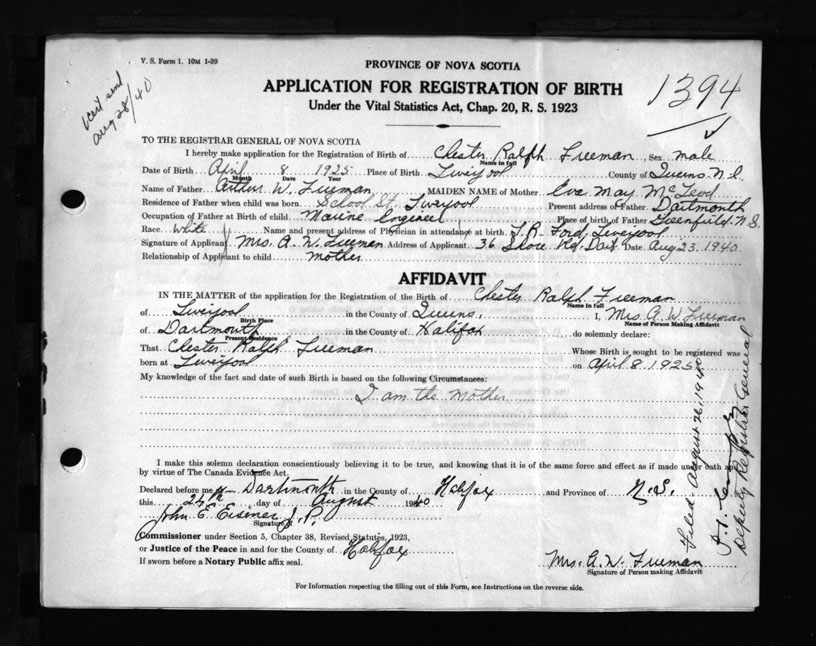 V. S. Form 1. 10M 1-39
PROVINCE OF NOVA SCOTIA
APPLICATION FOR REGISTRATION OF BIRTH
1394
Under the Vital Statistics Act, Chap. 20, R. S. 1923
Cert send
Aug 28/40
TO THE REGISTRAR GENERAL OF NOVA SCOTIA
I hereby make application for the Registration of Birth of Chester Ralph Freeman Sex male
Name in full
Date of Birth April 8 1925 Place of Birth Liverpool County of Queens N.S.
Month Date Year
Name of Father Arthur W. Freeman MAIDEN NAME of Mother Eva May McLeod
Residence of Father when child was born School St. Liverpool Present address of Father Dartmouth
Occupation of Father at Birth of child Marine Engineer Place of birth of Father Greenfield N.S.
Race White Name and present address of Physician in attendance at birth J. R. Ford, Liverpool
Signature of Applicant Mrs. A. W. Freeman Address of Applicant 36 Shore Rd. Dart. Date Aug 23. 1940.
Relationship of Applicant to child mother
AFFIDAVIT
IN THE MATTER of the application for the Registration of the Birth of Chester Ralph Freeman
Name in full
of Liverpool in the County of Queens, I, Mrs. A. W. Freeman
Birth Place Name of Person Making Affidavit
of Dartmouth in the County of Halifax do solemnly declare:
Present Residence
That Chester Ralph Freeman Whose Birth is sought to be registered was
born at Liverpool on April 8. 1925
My knowledge of the fact and date of such Birth is based on the following Circumstances:
I am the mother
I make this solemn declaration conscientiously believing it to be true, and knowing that it is of the same force and effect as if made under oath and
by virtue of The Canada Evidence Act.
Declared before me at Dartmouth in the County of Halifax and Province of N.S.
this 24th day of August 1940
John E. Eisener J.P.
Signature
Commissioner under Section 5, Chapter 38, Revised Statutes, 1923,
or Justice of the Peace in and for the County of Halifax
If sworn before a Notary Public affix seal.
Mrs. A. W. Freeman
Signature of Person making Affidavit
For Information respecting the filling out of this Form, see Instructions on the reverse side.
Filed August 26, 1940
Deputy Registrar General